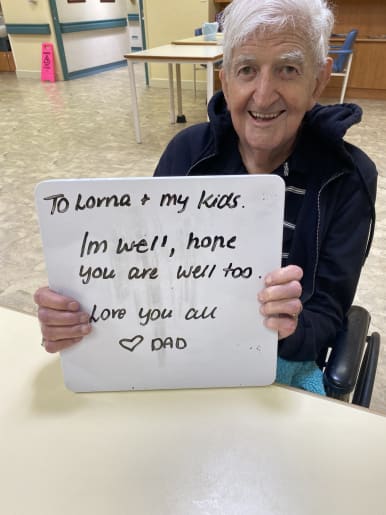 To Lorna + my kids.
Im well, hope
you are well too.
Love you all
♡ DAD